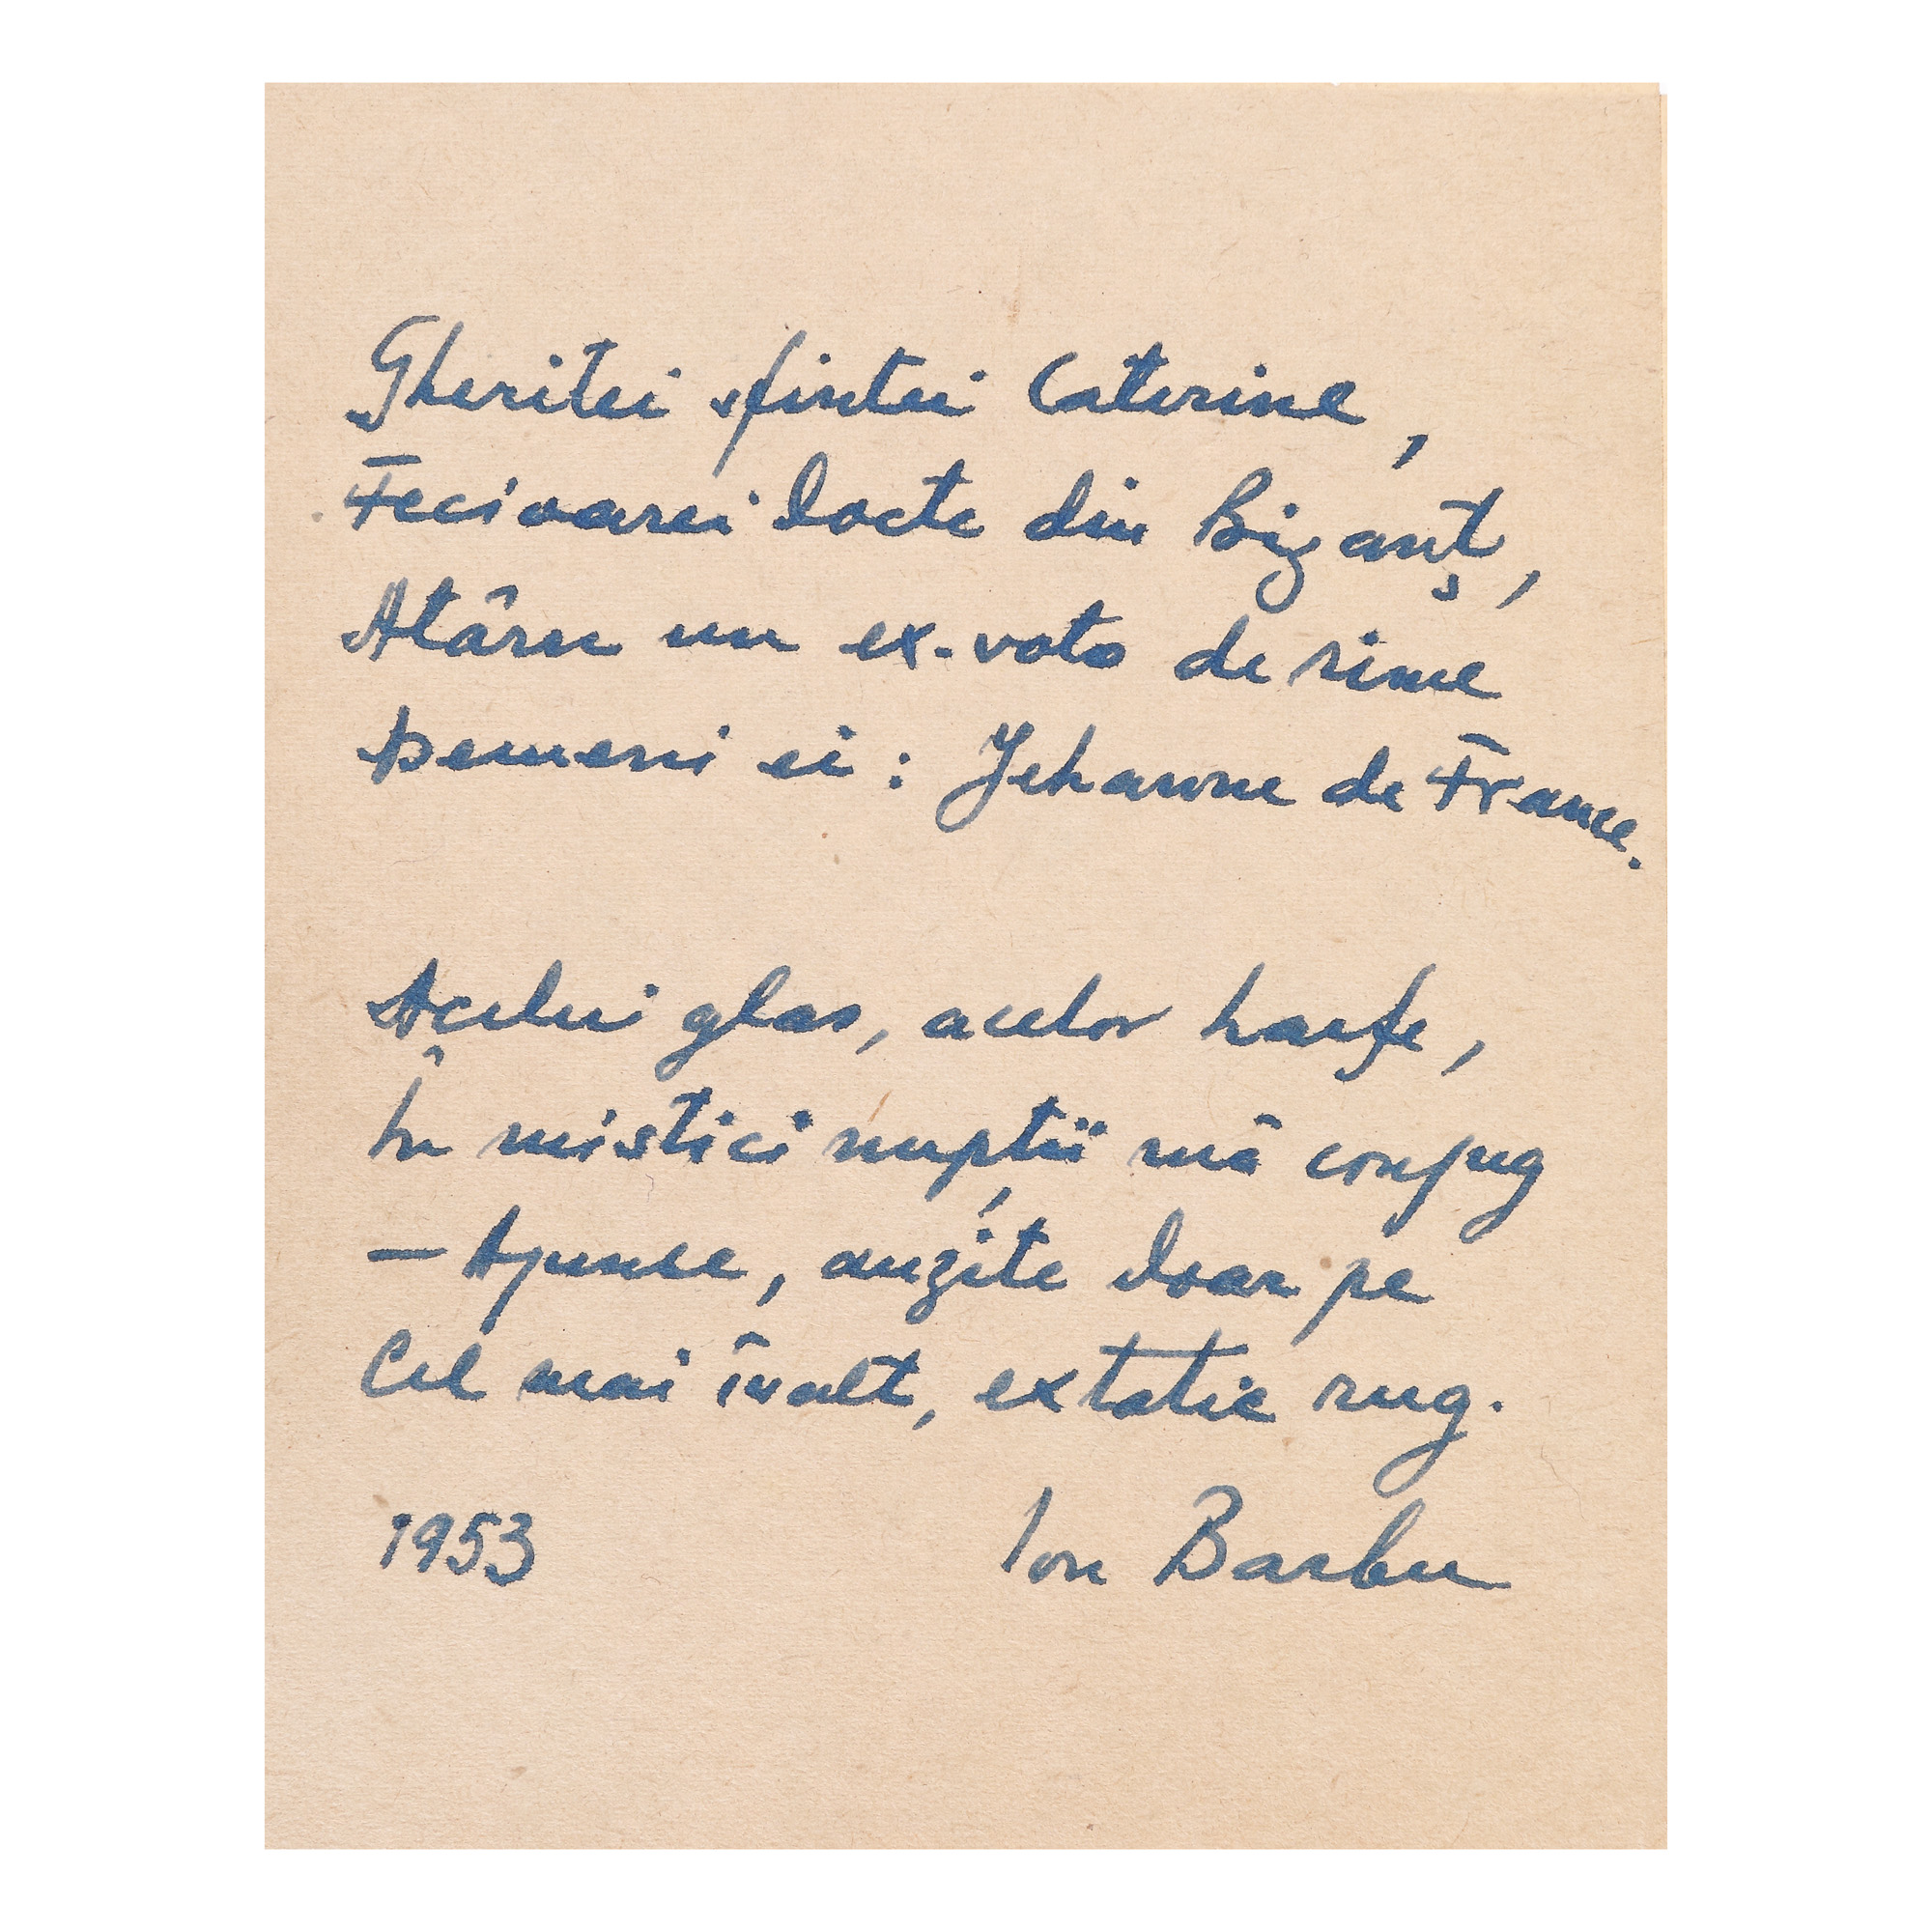 Gheritei sfintei Caterine,
Fecioarei docte din Bizanț,
Atârn un ex-voto de rime
Semenii ei: Jehanne de France.
Acelui glas, acelor harfe,
În mistici nupții mă conjug
— Apuse, auzite doar pe
Cel mai înalt, extatic rug.
1953 Ion Barbu